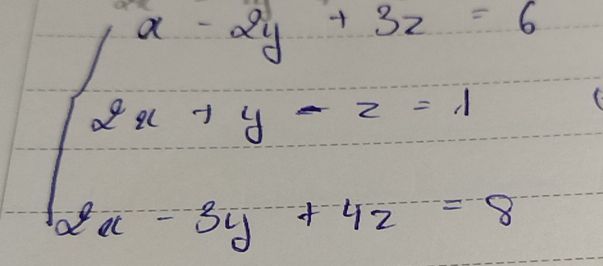 x - 2y + 3z = 6
2x + y - z = 1
2x - 3y + 4z = 8